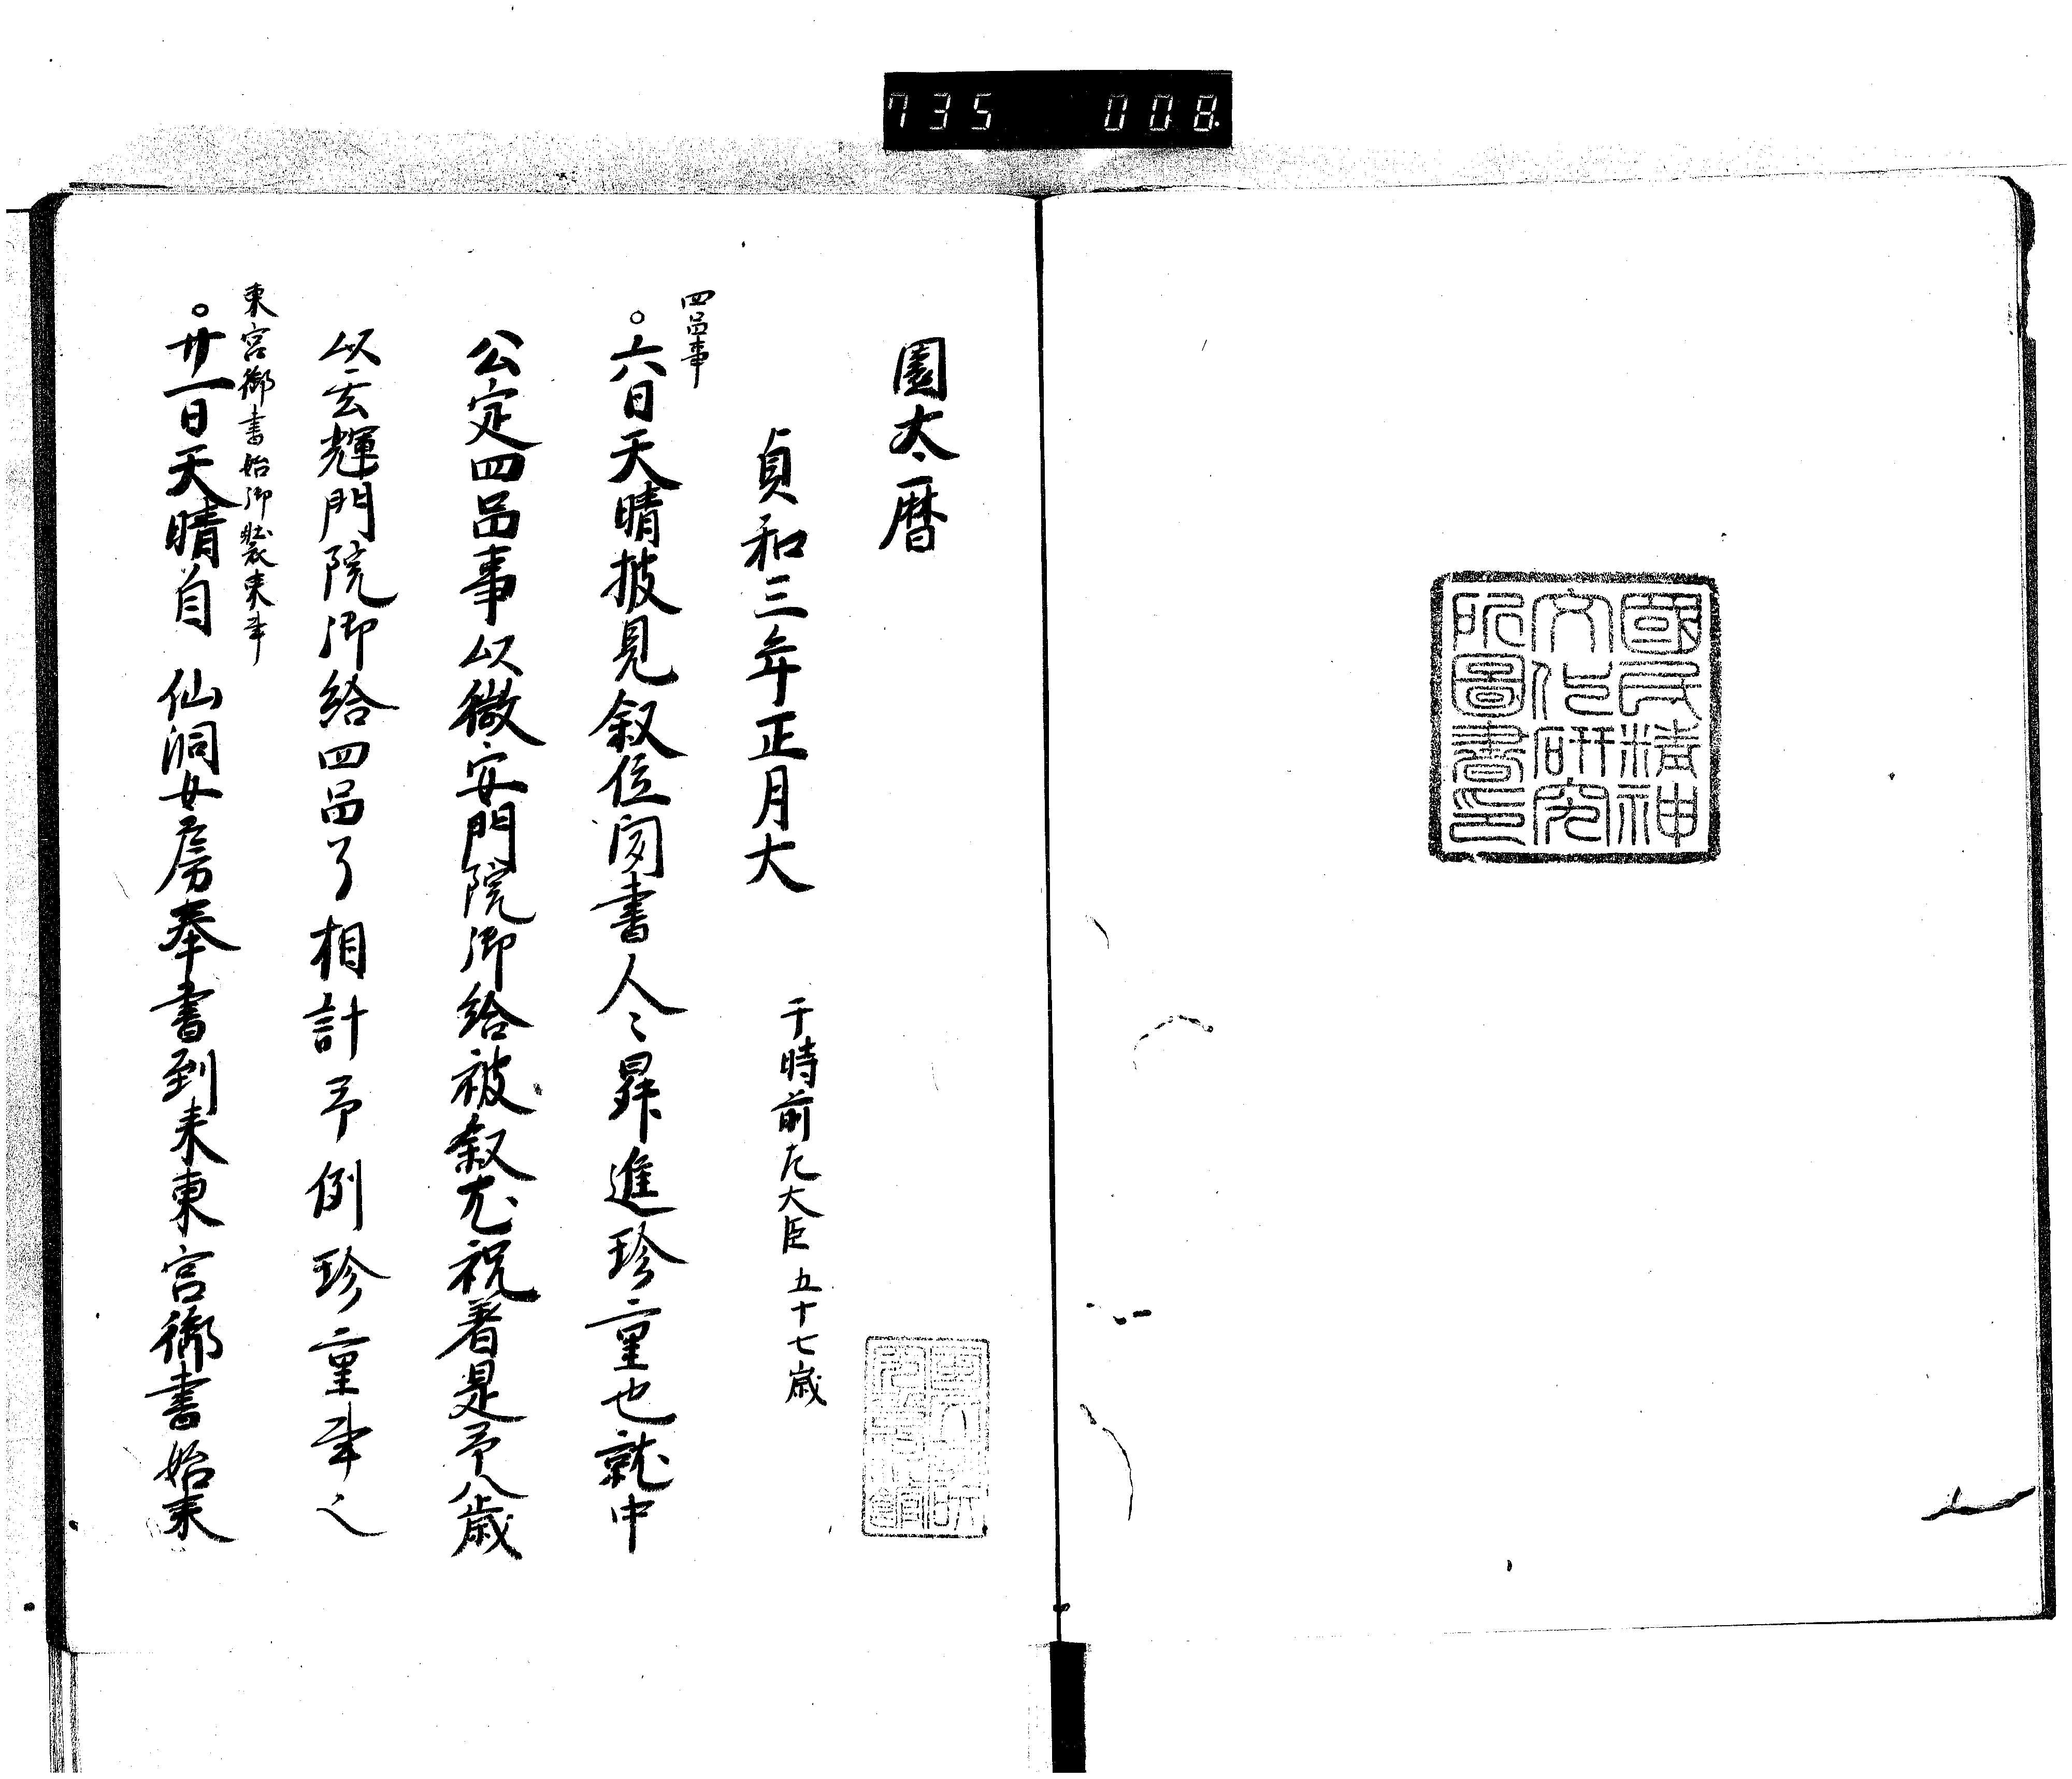 735 008
國民精神
文化研究
所圖書印
園太暦
貞和三年正月大 于時前左大臣 五十七歳
四品事
○六日天晴披見叙位聞書人々昇進珍重也就中
公定四品事以徽安門院御給被叙尤祝著是予八歳
以玄輝門院御給四品了相計予例珍重事也
東宮御書始御装束事
○廿一日天晴自 仙洞女房奉書到来東宮御書始来